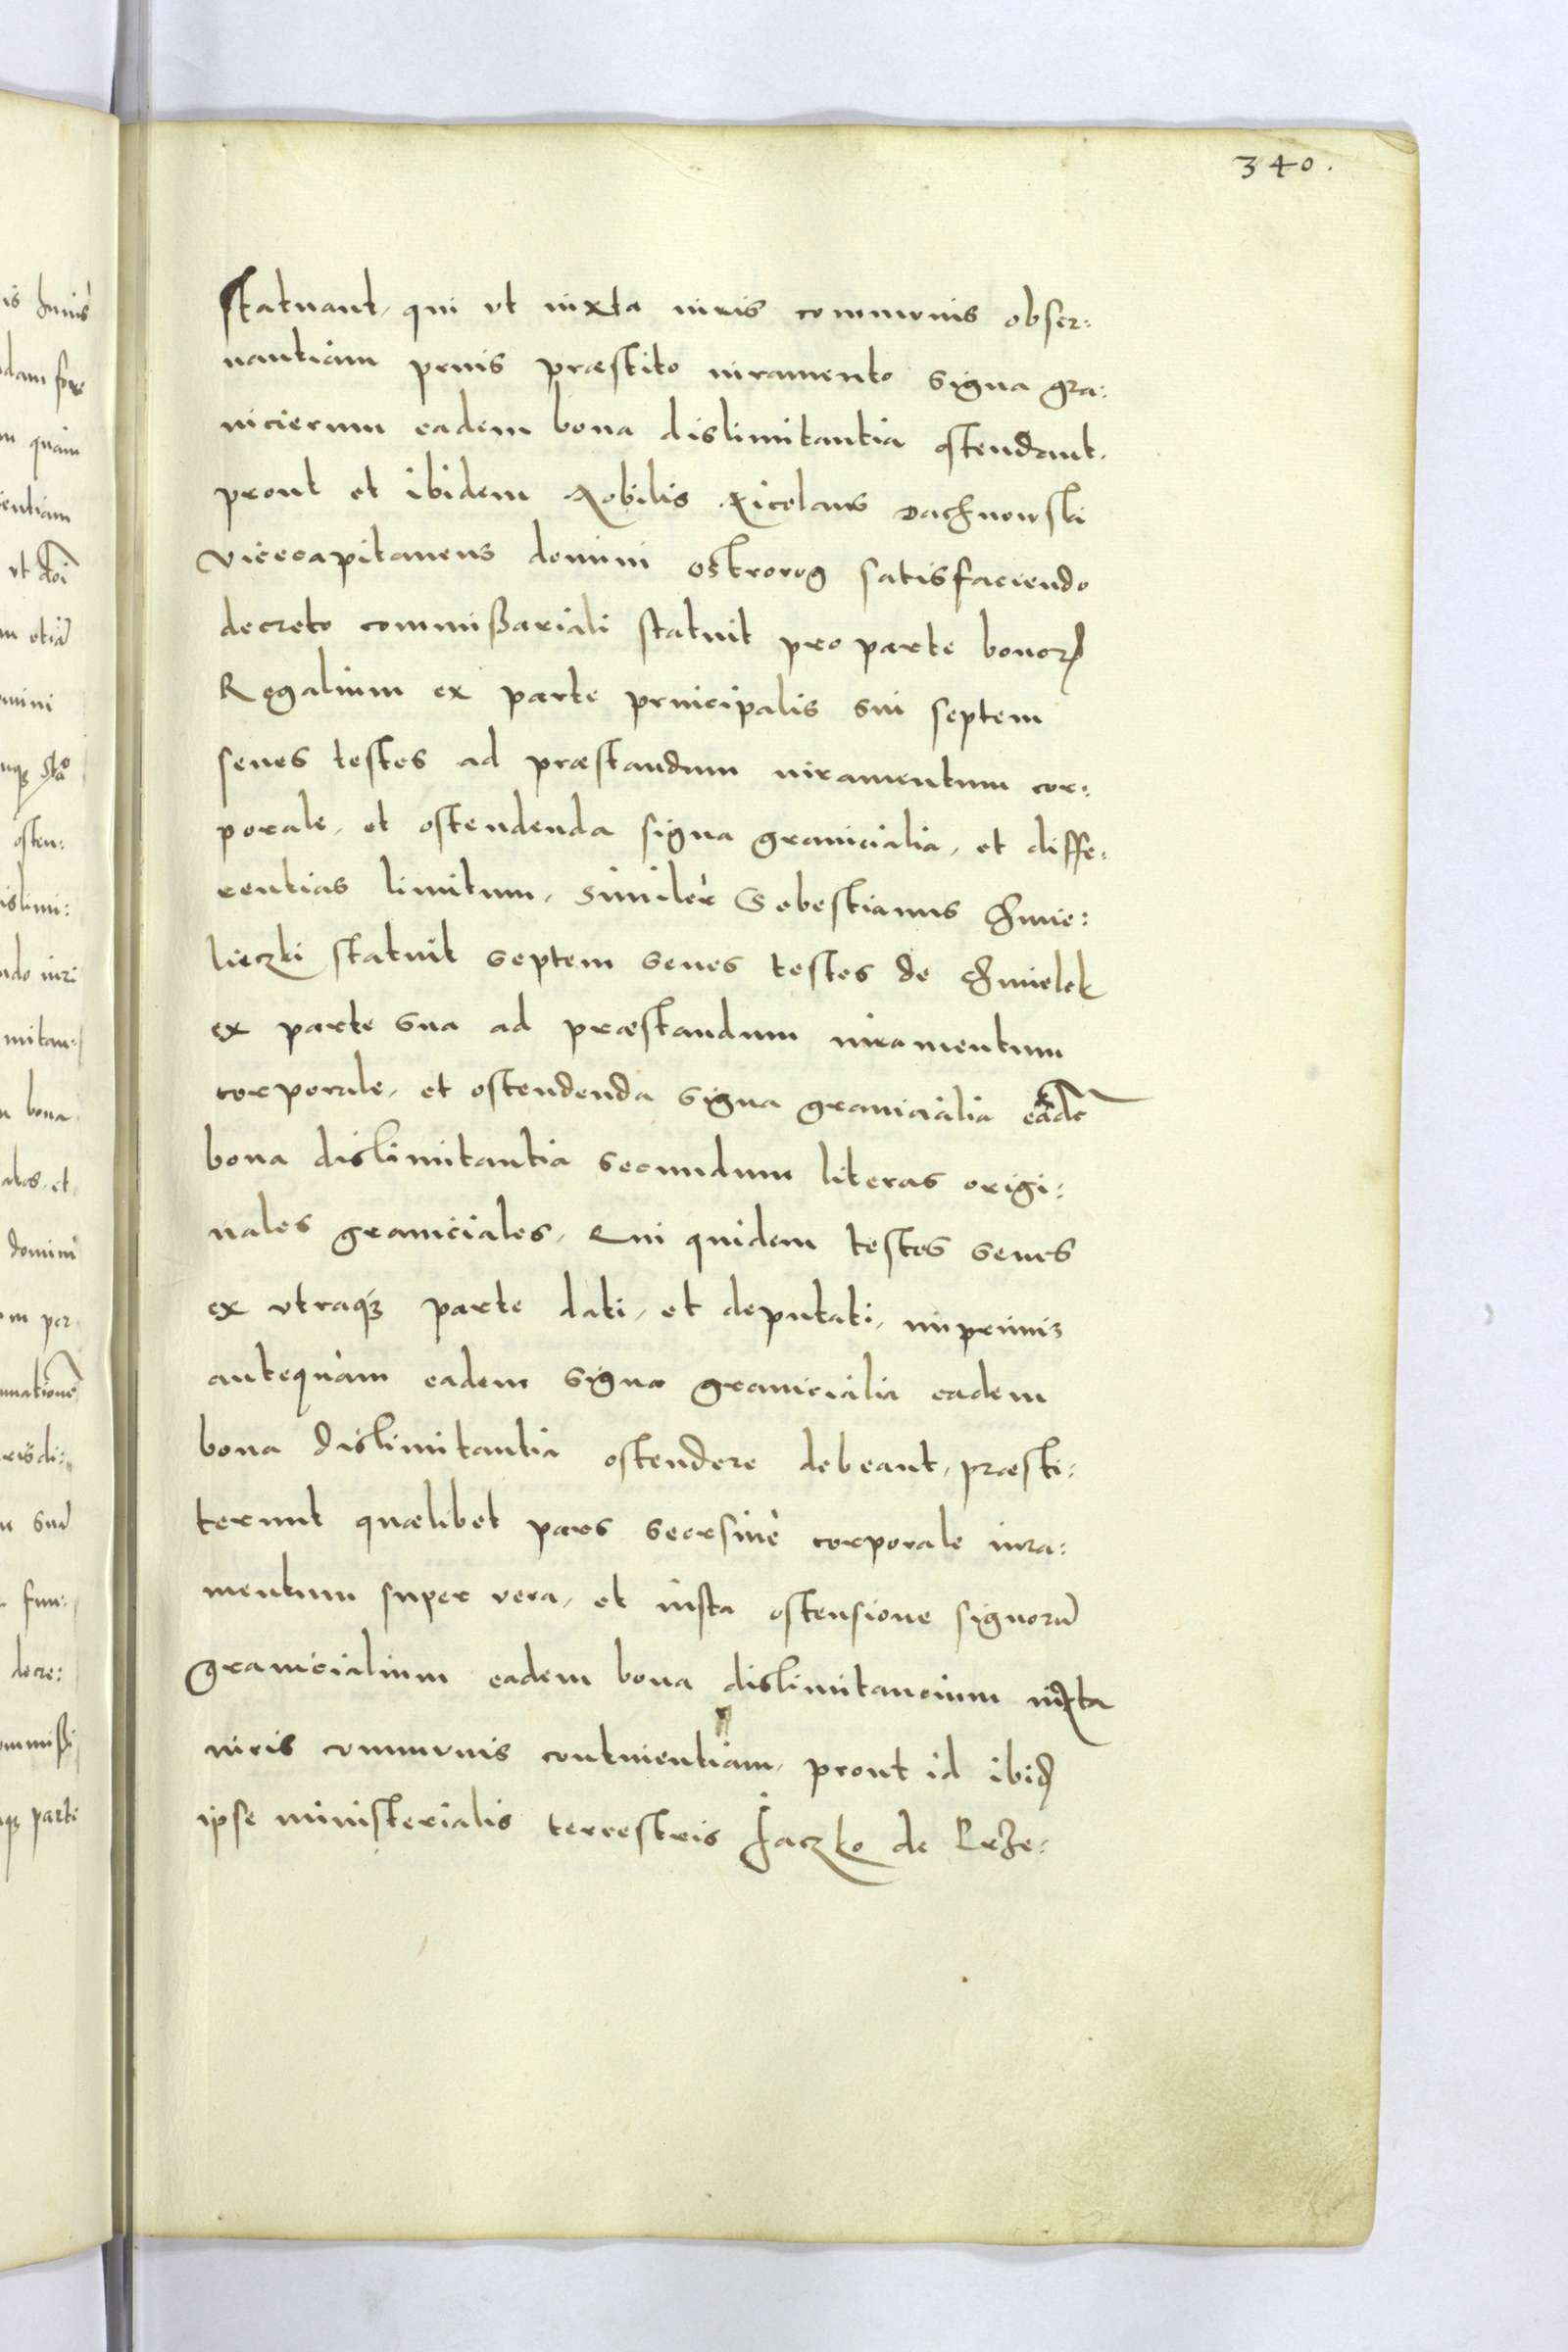 340.
statuant, qui ut iuxta iuris communis obser:
uantiam prius præstito iuramento signa gra:
nicierum eadem bona dislimitantia ostendant.
prout et ibidem Nobilis Nicolaus Dachnowski
Vicecapitaneus domini Ostrorog satisfaciendo
decreto commißariali statuit pro parte bonorꝝ
Regalium ex parte principalis sui septem
senes testes ad præstandum iuramentum cor:
porale, et ostendenda signa granicialia, et diffe:
rentias limitum, Similer̀ Sebestianus Chmie:
lieczki statuit septem senes testes de Chmielek
ex parte sua ad præstandum iuramentum
corporale, et ostendenda signa granicialia eadē
bona dislimitantia secundum literas origi:
nales graniciales, Qui quidem testes senes
ex utraqꝫ parte dati, et deputati, imprimis
antequàm eadem signa granicialia eadem
bona dislimitantia ostendere debeant, præsti:
terunt quælibet pars seorsiue corporale iura:
mentum super vera, et iusta ostensione signorū
granicialium eadem bona dislimitancium iuxta
iuris communis continentiam, prout id ibid
ipse ministerialis terrestris Jaczko de Krze:
is huius
dam fore
m quàm
ientiam
ut doī
m etiā
omini
osten:
islimi:
ndo iuri
mitan:
n bona
atas, et
domini
om per
risdi:
m suā
fun:
decre:
ommißi
qꝫ parti